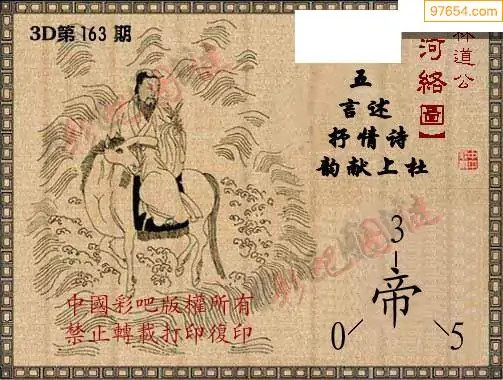 97654.com
3D第163期
林道公
河絡圖】
五
言述
抒情诗
韵献上杜
彩吧图谜
彩吧图谜
3
帝
0 5
中國彩吧版權所有
禁止轉載打印復印